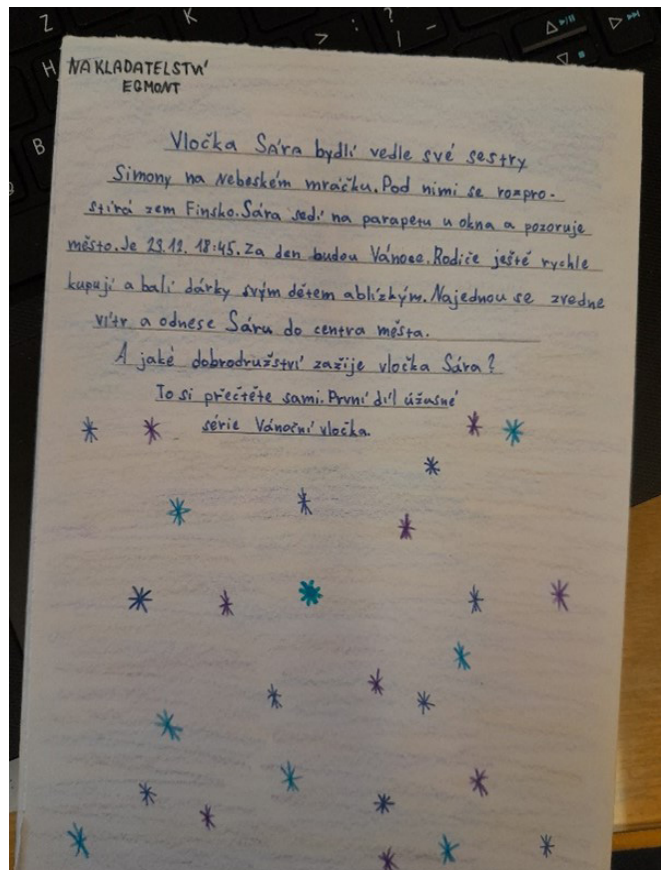 NAKLADATELSTVÍ
EGMONT
Vločka Sára bydlí vedle své sestry
Simony na Nebeském mráčku. Pod nimi se rozpro-
stírá zem Finsko. Sára sedí na parapetu u okna a pozoruje
město. Je 23.12. 18:45. Za den budou Vánoce. Rodiče ještě rychle
kupují a balí dárky svým dětem a blízkým. Najednou se zvedne
vítr a odnese Sáru do centra města.
A jaké dobrodružství zažije vločka Sára?
To si přečtěte sami. První díl úžasné
série Vánoční vločka.
Z
K
H
B
> :
? !
_